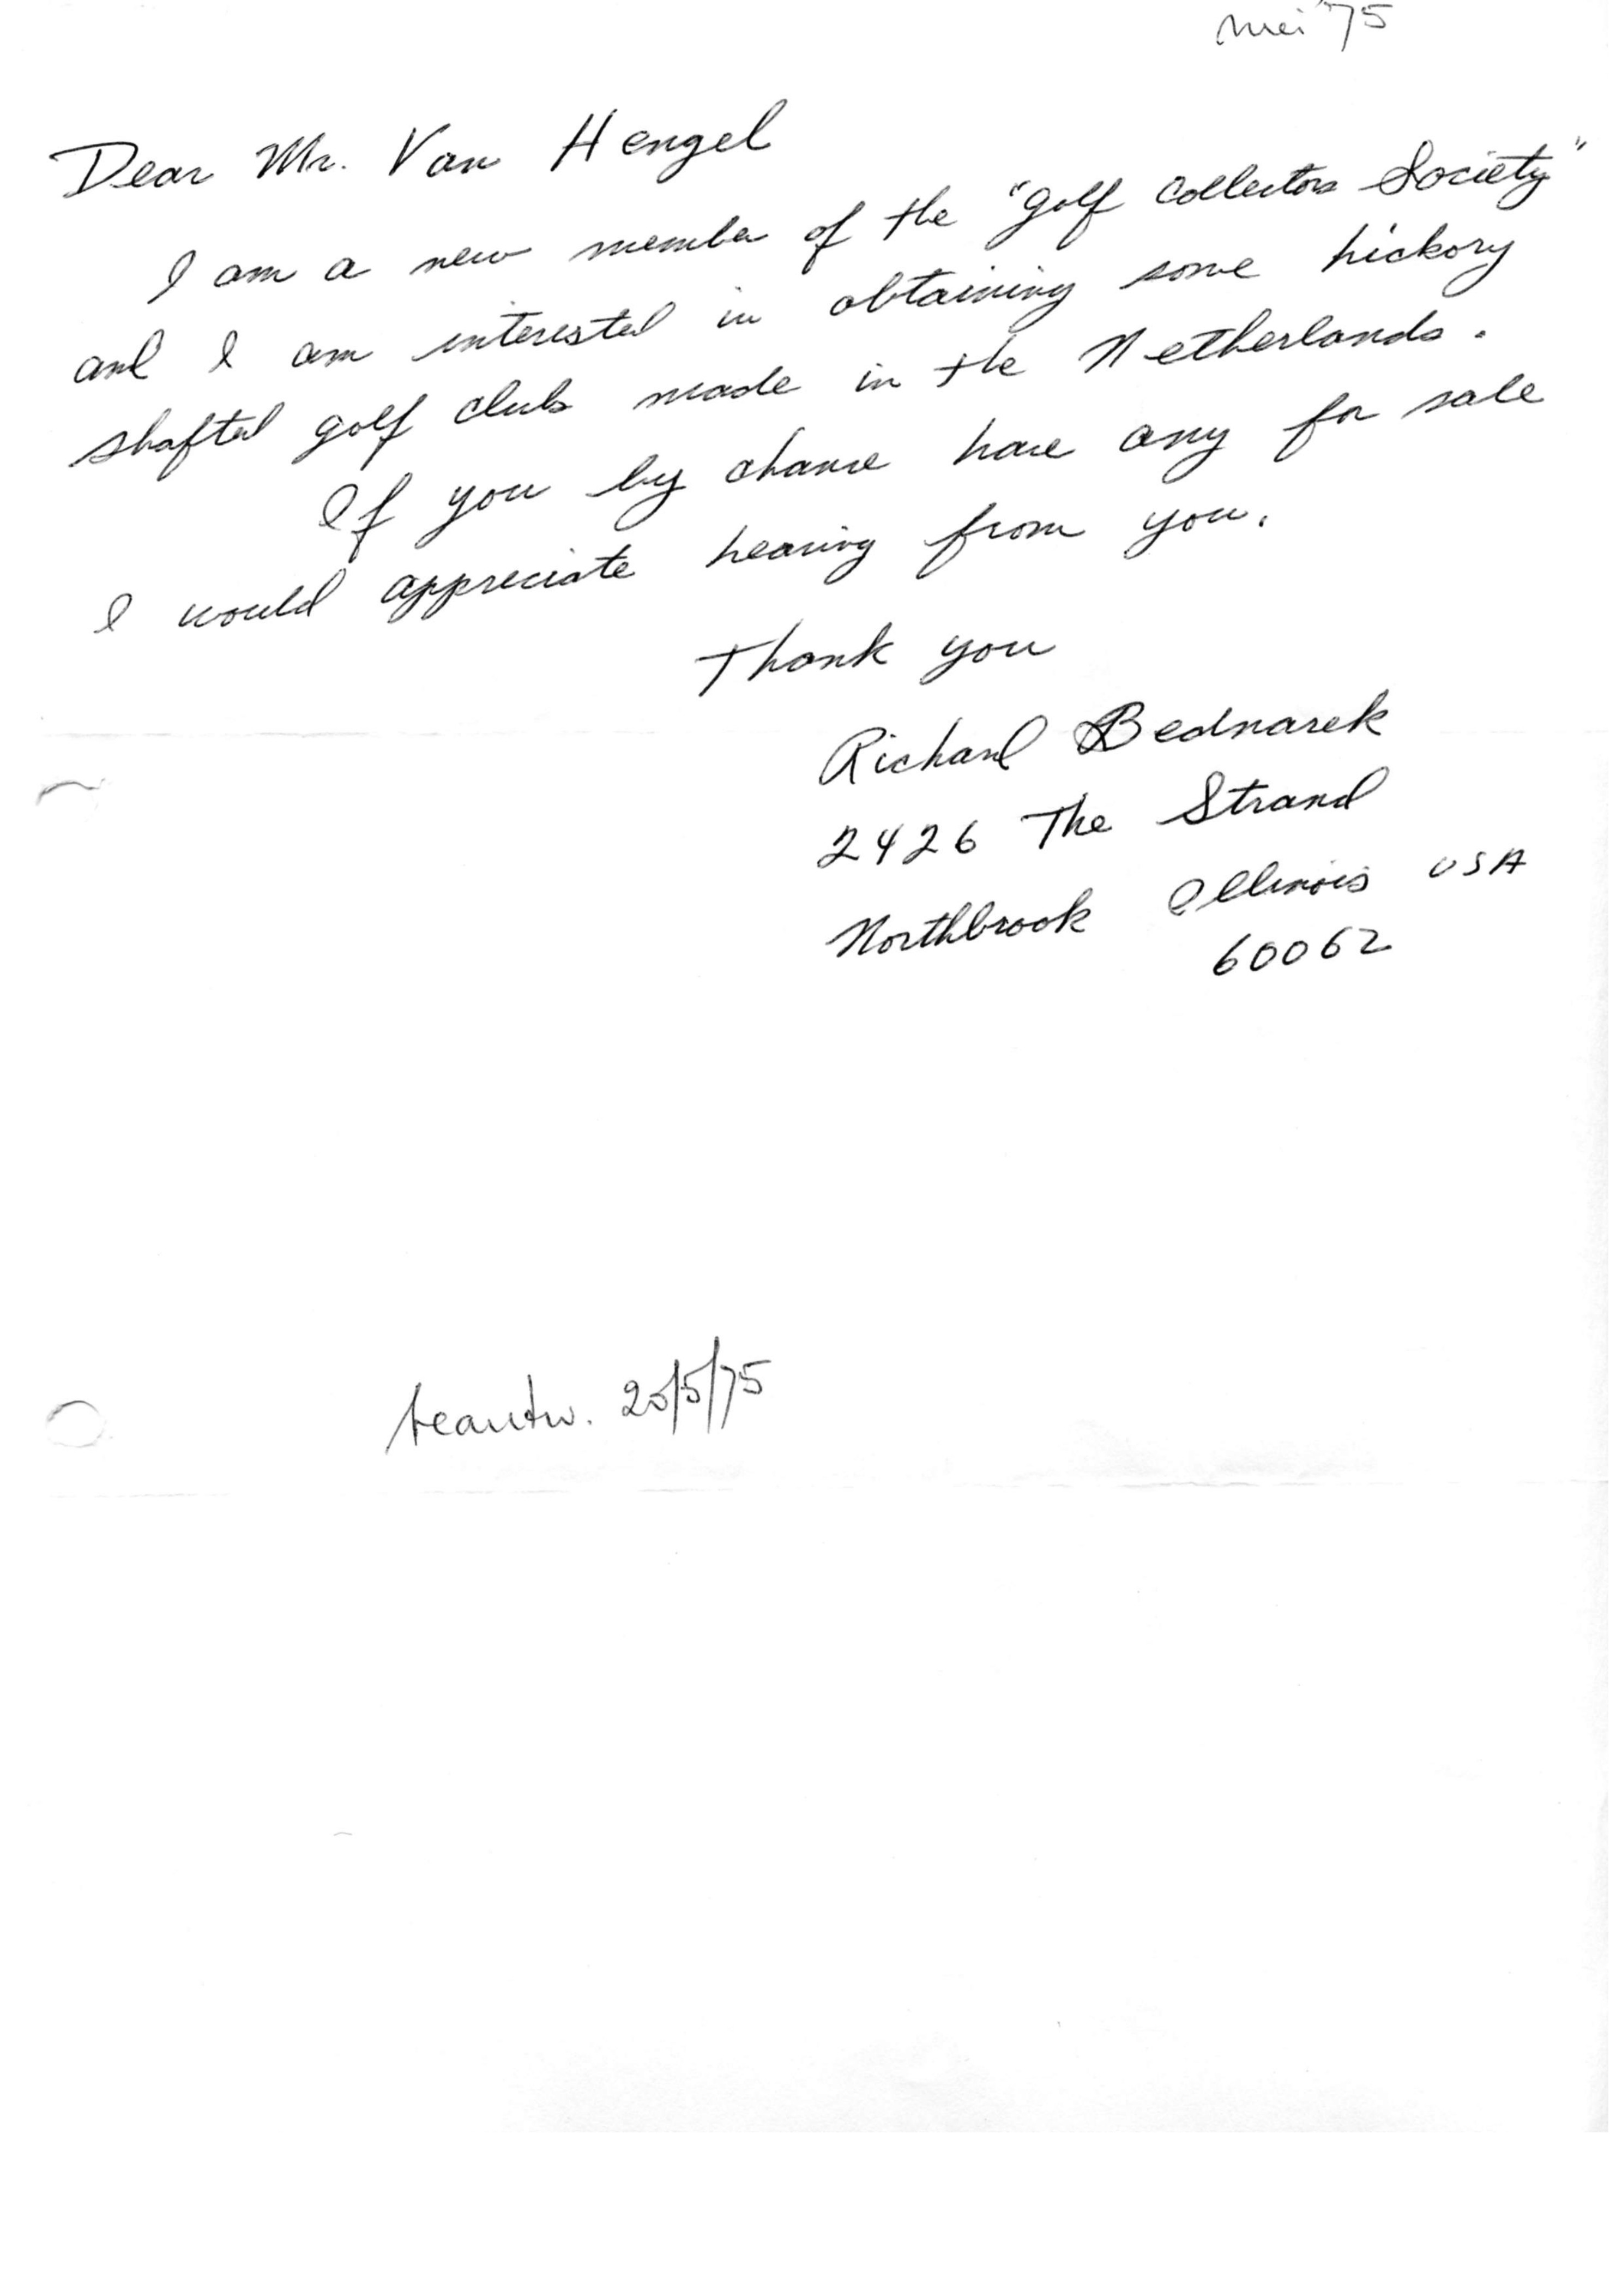 mei '75
Dear Mr. Van Hengel
I am a new member of the "golf collectors Society"
and I am interested in obtaining some hickory
shafted golf clubs made in the Netherlands.
If you by chance have any for sale
I would appreciate hearing from you.
Thank you
Richard Bednarek
2426 The Strand
Northbrook Illinois USA
60062
beantw. 20/5/75